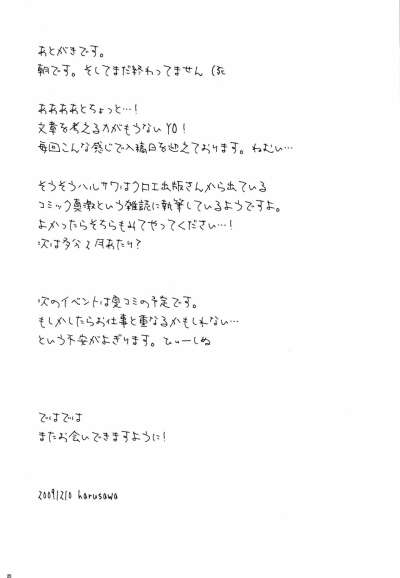 あとがきです。
朝です。そしてまだ終わってません (死
ああああとちょっと…!
文章を考える力がもうないYO!
毎回こんな感じで入稿日を迎えております。ねむい…
そうそうハルサワはクロエ出版さんから出ている
コミック真激という雑誌に執筆しているようですよ。
よかったらそちらもみてやってください…!
次は多分2月あたり?
次のイベントは夏コミの予定です。
もしかしたらお仕事と重なるかもしれない…
という不安がよぎります。てぃーしぬ
ではでは
またお会いできますように!
20091210 harusawa